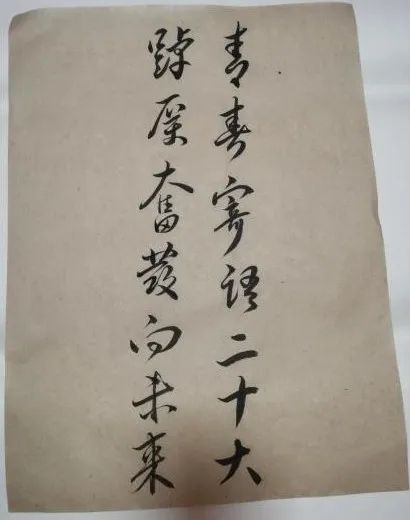 青春寄语二十大
踔厉奋發向未来